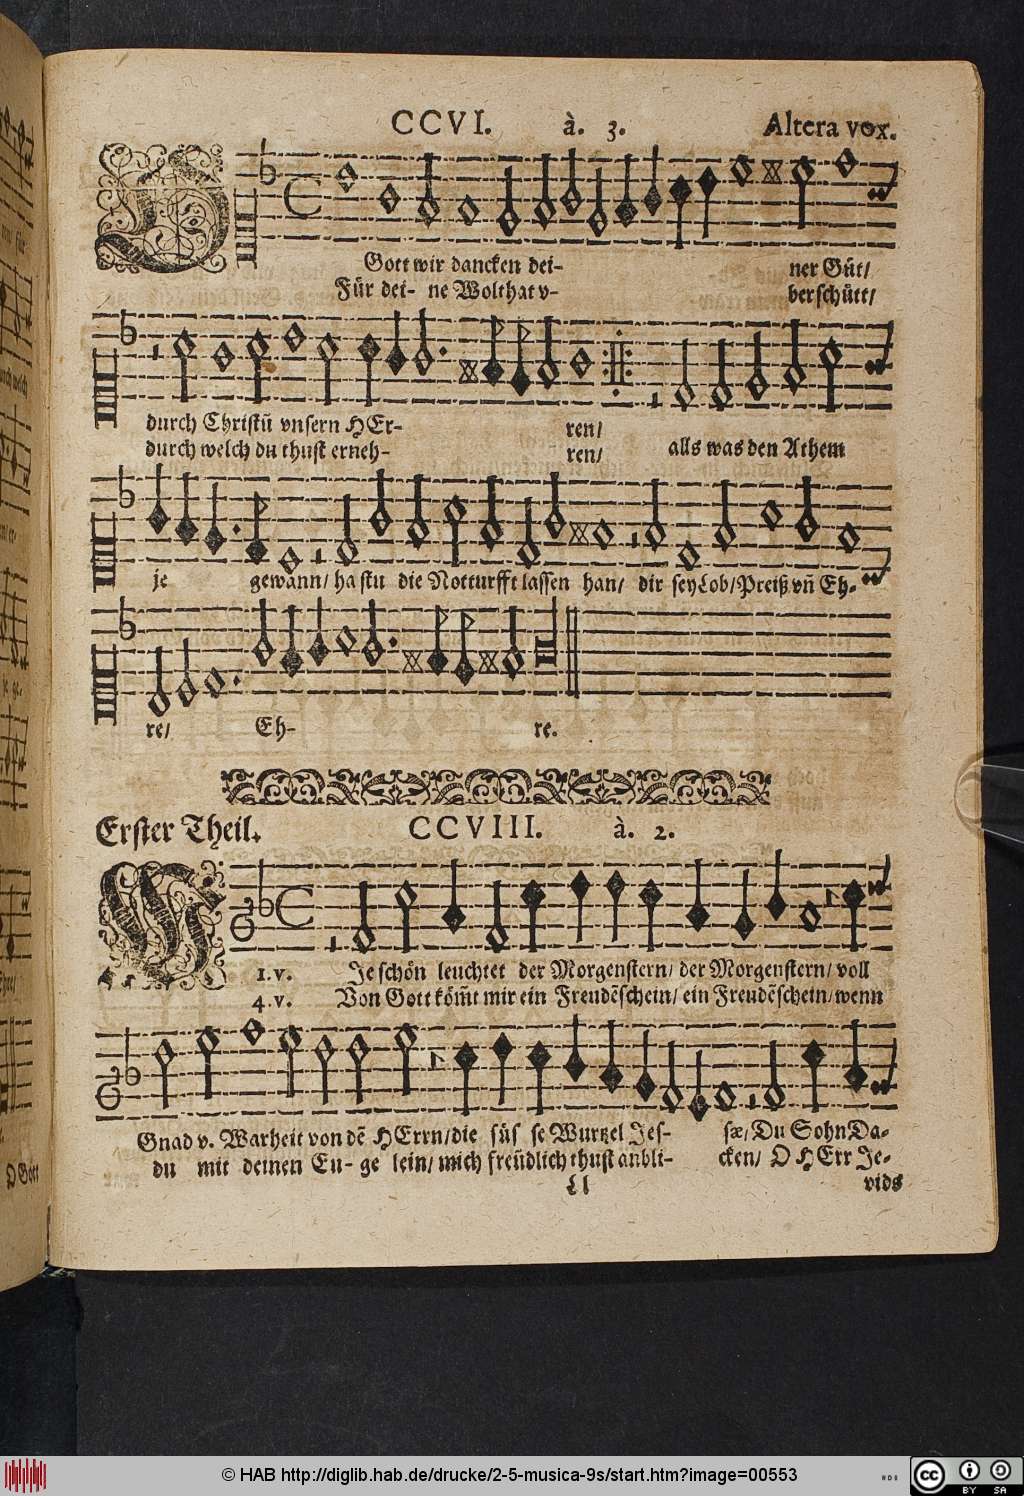 CCVI. à. 3. Altera vox.
O
Gott wir dancken dei- ner Güt/
Für dei- ne Wolthat v- berschütt/
durch Christū vnsern HEr- ren/
durch welch du thust erneh- ren/ alls was den Athem
je gewann/ hastu die Notturfft lassen han/ dir sey Lob/Preiß vñ Eh-
re/ Eh- re.
Erster Theil. CCVIII. à. 2.
W
1.v. Je schön leuchtet der Morgenstern/ der Morgenstern/ voll
4.v. Von Gott köm̄t mir ein Freudēschein/ ein Freudēschein/wenn
Gnad v. Warheit von dē HErrn/die süs se Wurtzel Jes- sæ/Du Sohn Da-
du mit deinen Eu- ge lein/ mich freündlich thust anbli- cken/ O HErr Je-
Ll vids
O Gott
© HAB http://diglib.hab.de/drucke/2-5-musica-9s/start.htm?image=00553
cc BY SA